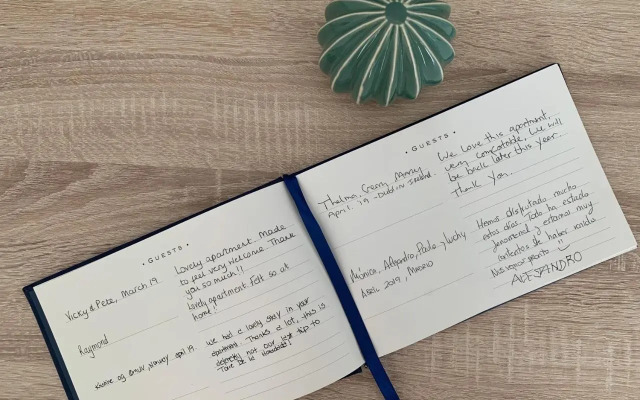 • GUESTS •
Vicky & Pete, March 19
Lovely apartment. Made
to feel very welcome. Thank
you so much!!
Raymond
Lovely apartment. Felt so at
home!
Norway april 19.
We had a lovely stay in your
apartment. Thanks a lot, this is
definitely not our last trip to
• GUESTS •
Thelma, Gerry, Manny
April. 19 - Dublin Ireland.
We Love this apartment,
very comfortable, we will
be back later this year...
Thank you..
Mónica, Alejandro, Paula y Lucky
Abril 2019, Madrid
Hemos disfrutado mucho
estos días. Todo ha estado
fenomenal y estamos muy
contentos de haber venido
Nos vemos pronto !!
ALEJANDRO